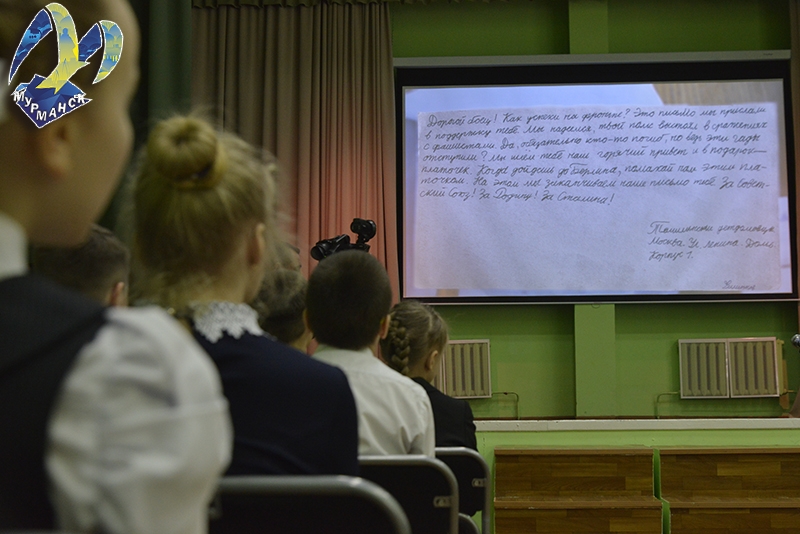 МУРМАНСК
Дорогой боец! Как успехи на фронте? Это письмо мы прислали
в поддержку тебе. Мы надеемся, твой полк выстоял в сражениях
с фашистами. Да, обязательно кто-то погиб, но ведь эти гады
отступили? Мы шлем тебе наш горячий привет и в подарок
платочек. Когда дойдешь до Берлина, помахай там этим пла-
точком. На этом мы заканчиваем наше письмо тебе. За Совет-
ский Союз! За Родину! За Сталина!
Москва. Ул. Ленина. Дом 2
Корпус 1.